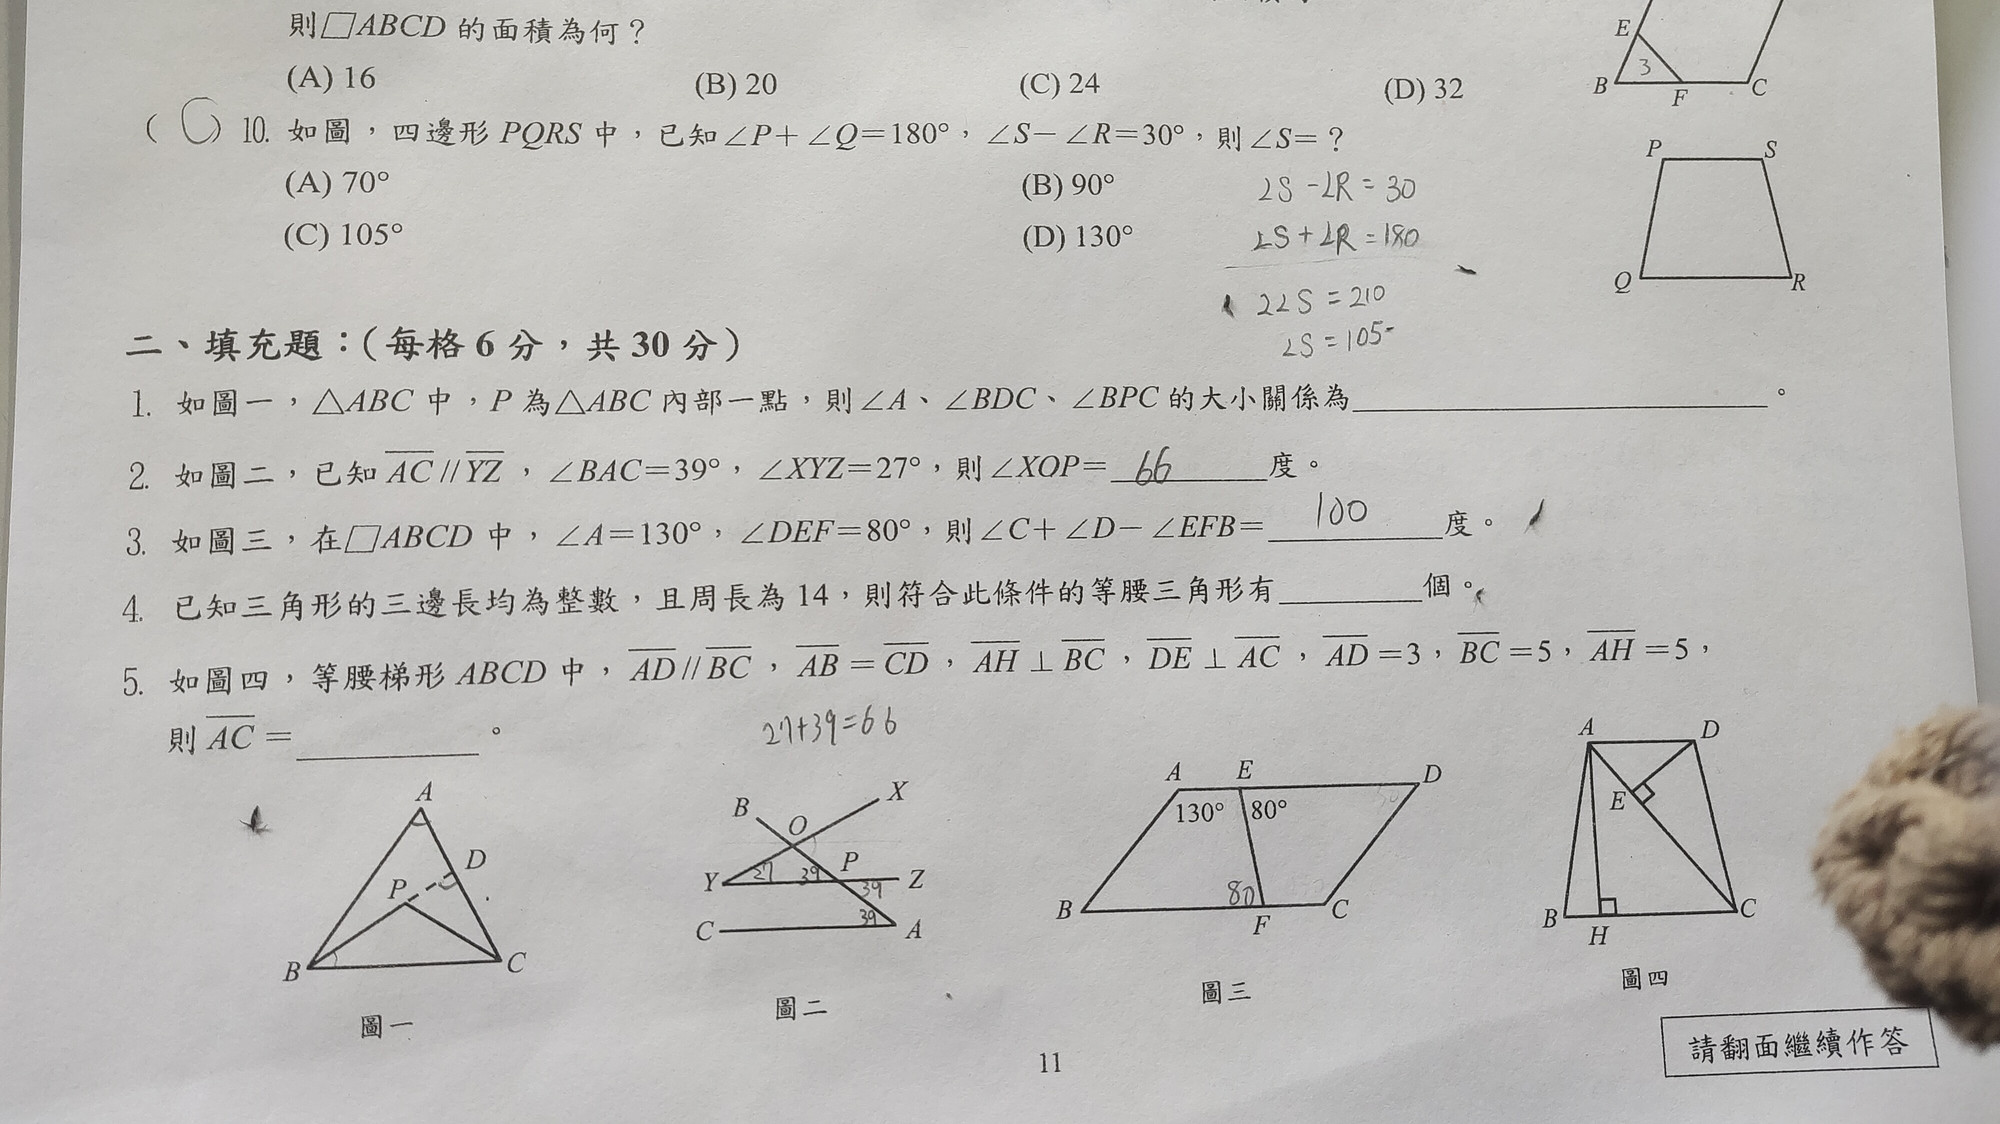 則▱ABCD 的面積為何？
(A) 16 (B) 20 (C) 24 (D) 32
E
3
B F C
( C ) 10. 如圖，四邊形 PQRS 中，已知∠P＋∠Q＝180°，∠S－∠R＝30°，則∠S＝？
(A) 70° (B) 90°
(C) 105° (D) 130°
∠S－∠R＝30
∠S＋∠R＝180
2∠S＝210
∠S＝105
P S
Q R
二、填充題：（每格 6 分，共 30 分）
1. 如圖一，△ABC 中，P 為△ABC 內部一點，則∠A、∠BDC、∠BPC 的大小關係為＿＿＿＿。
2. 如圖二，已知 AC // YZ，∠BAC＝39°，∠XYZ＝27°，則∠XOP＝ 66 度。
3. 如圖三，在▱ABCD 中，∠A＝130°，∠DEF＝80°，則∠C＋∠D－∠EFB＝ 100 度。
4. 已知三角形的三邊長均為整數，且周長為 14，則符合此條件的等腰三角形有＿＿＿＿個。
5. 如圖四，等腰梯形 ABCD 中，AD // BC，AB＝CD，AH⊥BC，DE⊥AC，AD＝3，BC＝5，AH＝5，
則 AC＝＿＿＿＿。
27+39=66
A
D
P
B C
圖一
B X
O
P
Y 27 39 39 Z
C 39 A
圖二
A E D
130° 80° 50
80
B F C
圖三
A D
E
B H C
圖四
請翻面繼續作答
11